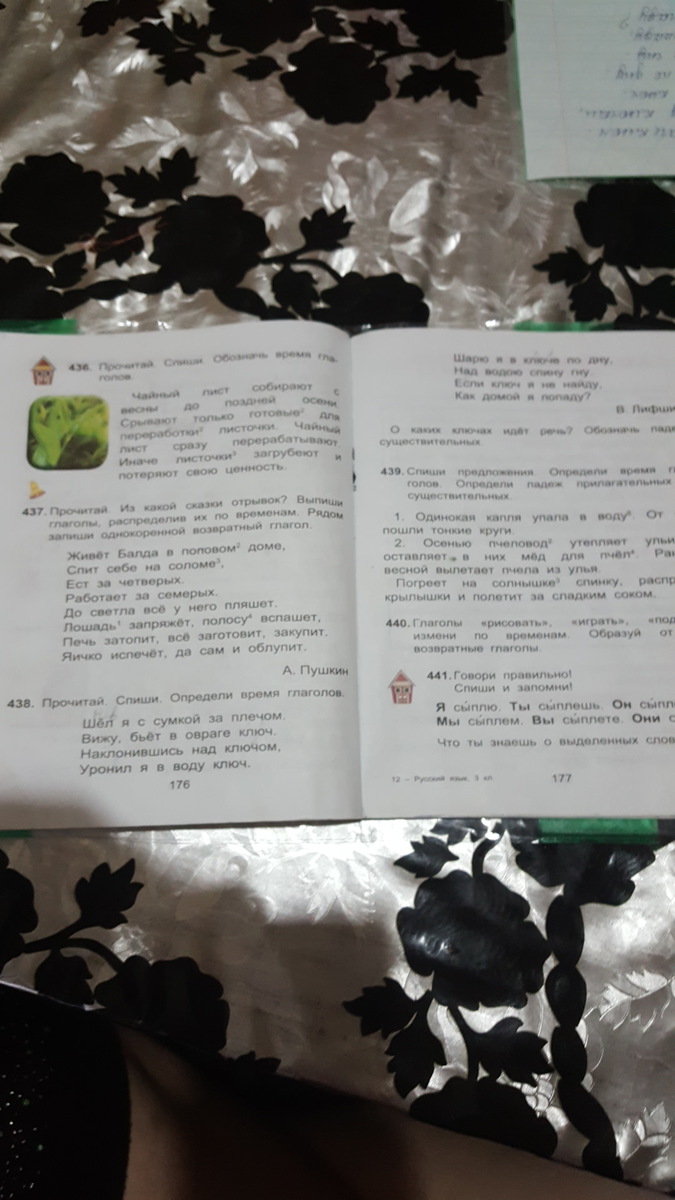 436. Прочитай. Спиши. Обозначь время гла-
голов.
Чайный лист собирают с
весны до поздней осени.
Срывают только готовые² для
переработки² листочки. Чайный
лист сразу перерабатывают.
Иначе листочки³ загрубеют и
потеряют свою ценность.
437. Прочитай. Из какой сказки отрывок? Выпиши
глаголы, распределив их по временам. Рядом
запиши однокоренной возвратный глагол.
Живёт Балда в поповом² доме,
Спит себе на соломе³,
Ест за четверых.
Работает за семерых.
До светла всё у него пляшет.
Лошадь¹ запряжёт, полосу⁴ вспашет,
Печь затопит, всё заготовит, закупит.
Яичко испечёт, да сам и облупит.
А. Пушкин
438. Прочитай. Спиши. Определи время глаголов.
Шёл я с сумкой за плечом.
Вижу, бьёт в овраге ключ.
Наклонившись над ключом,
Уронил я в воду ключ.
176
Шарю я в ключе по дну,
Над водою спину гну.
Если ключ я не найду,
Как домой я попаду?
В.
О каких ключах идёт речь? Обозначь
существительных.
439. Спиши предложения. Определи время
голов. Определи падеж прилагательных
существительных.
1. Одинокая капля упала в воду⁶. От
пошли тонкие круги.
2. Осенью пчеловод² утепляет
оставляет в них мёд для пчёл⁴.
весной вылетает пчела из улья.
Погреет на солнышке³ спинку,
крылышки и полетит за сладким соком.
440. Глаголы «рисовать», «играть»,
измени по временам. Образуй от
возвратные глаголы.
441. Говори правильно!
Спиши и запомни!
Я сы́плю. Ты сы́плешь. Он
Мы сы́плем. Вы сы́плете. Они
Что ты знаешь о выделенных
12 – Русский язык, 3 кл.
177